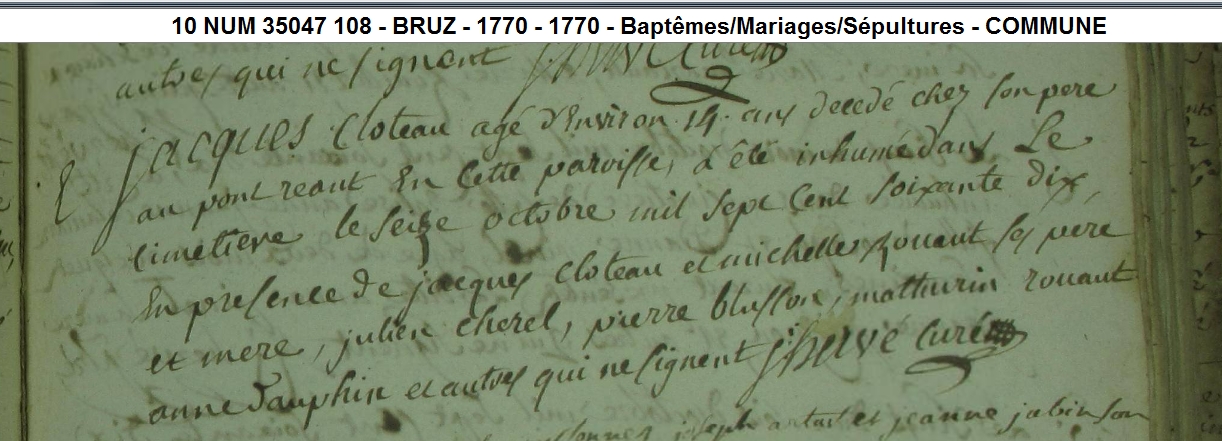 10 NUM 35047 108 - BRUZ - 1770 - 1770 - Baptêmes/Mariages/Sépultures - COMMUNE
autres qui ne signent curé
jacques Cloteau agé d'Environ 14 ans decedé chez son pere
au pont reant En Cette paroisse, a été inhumé dans Le
Cimetiere le seize octobre mil sept Cent soixante dix,
En presence de jacques Cloteau et michelle rouaut ses père
et mere, julien cherel, pierre blusson, mathurin rouaut
anne dauphin et autres qui ne signent j: herve Curé
joseph et jeanne jabin son